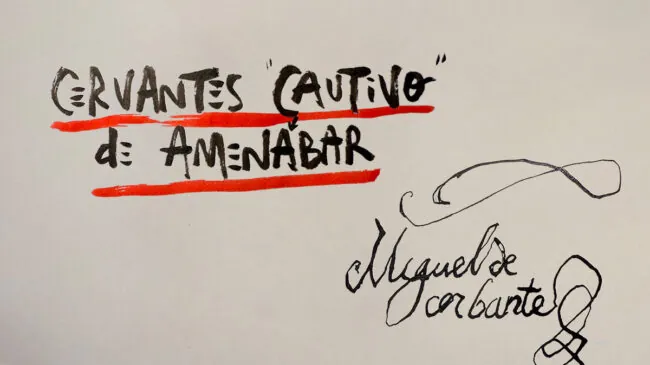 CERVANTES "CAUTIVO"
de AMENÁBAR
Miguel de
cerbantes